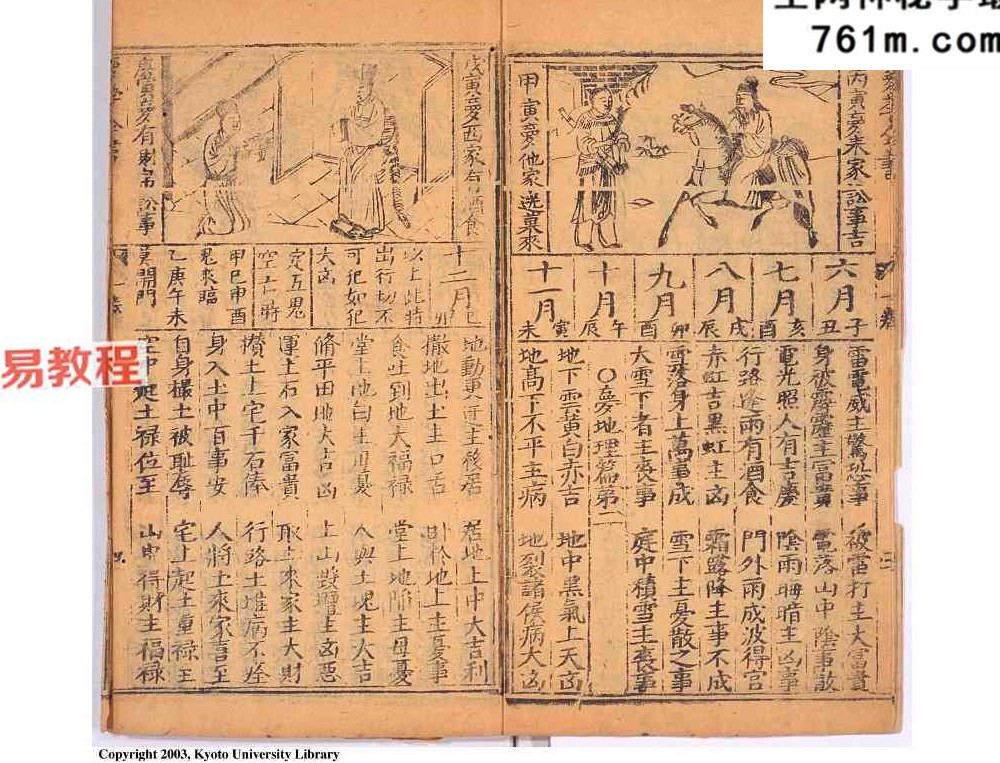 761m.com
易教程
丙寅夢来家訟事吉
甲寅夢他家送菓來
六月
子
丑
七月
亥
酉
八月
戌
辰
九月
卯
酉
十月
午
辰
十一月
寅
未
雷電威主驚恐事
被雷打主大富貴
身被霹靂主富貴
電光照人有吉慶
陰雨晦暗主凶事
行路逢雨有酒食
門外雨成波得官
赤虹吉黑虹主凶
霜露降主事不成
雪落身上萬事成
雪下主憂散之事
大雪下者主喪事
庭中積雪主喪事
○夢地理篇第二
地下雲黄白赤吉
地中黑氣上天凶
地高下不平主病
地裂諸侯病大凶
戊寅夢西家有酒食
庚寅夢有財帛訟事
十二月
以上此時
出行切不
可犯如犯
大凶
定五鬼
空亡時
甲巳申酉
鬼來臨
乙庚午未
莫開門
地動更遷主移居
居地上中大吉利
撒地出土主口舌
卧於地上主憂事
食吐到地大福禄
堂上地陷主母憂
人與土塊主大吉
脩平田地大吉凶
上山毀壇主凶惡
運土石入家富貴
取土來家主大財
攢土上宅千石俸
行路土堆病不痊
身入土中百事安
人將土來家喜至
自身撮土被耻辱
宅上起土重禄至
空中起土禄位至
山中得財主福禄
Copyright 2003, Kyoto University Library